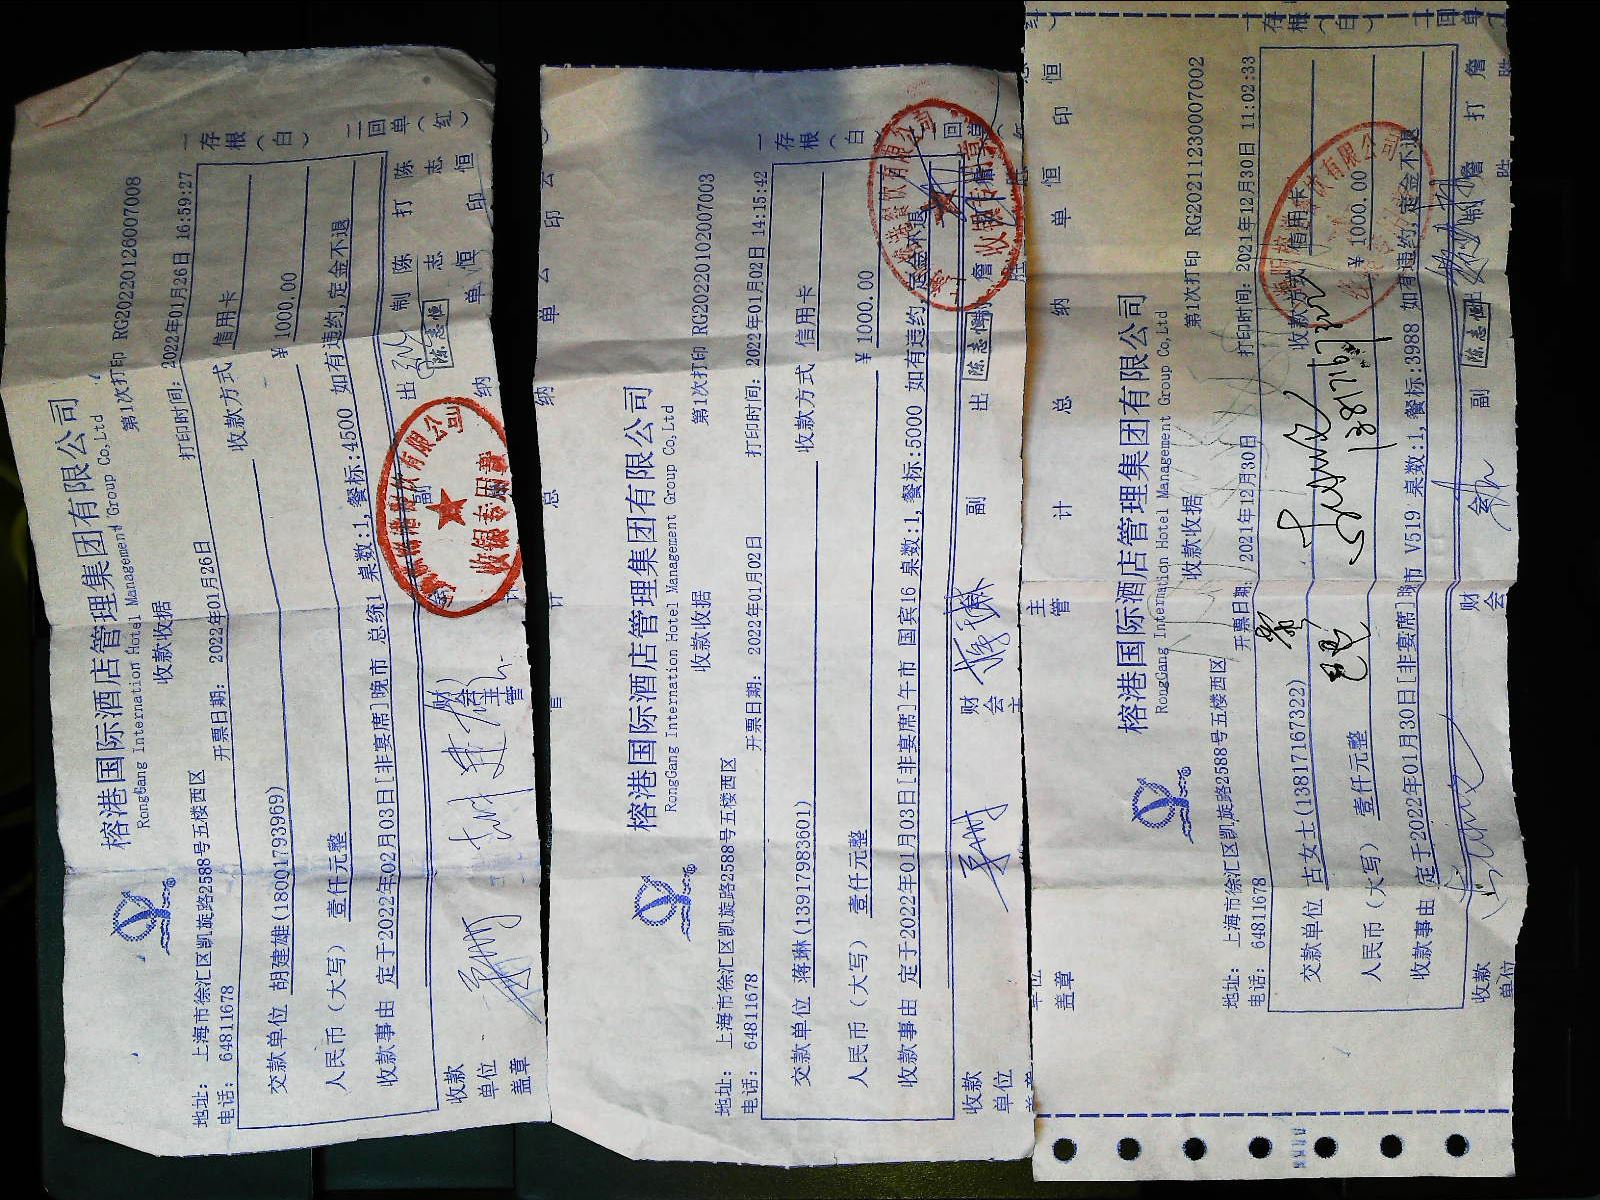 榕港国际酒店管理集团有限公司
RongGang International Hotel Management Group Co,Ltd
收款收据
第1次打印 RG20220126007008
地址: 上海市徐汇区凯旋路2588号五楼西区
电话: 64811678
开票日期: 2022年01月26日
打印时间: 2022年01月26日 16:59:27
交款单位 胡建雄(18001793969)
收款方式 信用卡
人民币（大写） 壹仟元整
¥ 1000.00
收款事由 定于2022年02月03日[非宴席]晚市 总统1 桌数:1,餐标:4500 如有违约,定金不退
一存根（白）
二回单（红）
收款单位盖章
财会主管
副总
出纳
陈志恒
制单
陈志恒
打印
陈志恒
榕港国际酒店管理集团有限公司
RongGang International Hotel Management Group Co,Ltd
收款收据
第1次打印 RG20220102007003
地址: 上海市徐汇区凯旋路2588号五楼西区
电话: 64811678
开票日期: 2022年01月02日
打印时间: 2022年01月02日 14:15:42
交款单位 蒋琳(13917983601)
收款方式 信用卡
人民币（大写） 壹仟元整
¥ 1000.00
收款事由 定于2022年01月03日[非宴席]午市 国宾16 桌数:1,餐标:5000 如有违约,定金不退
一存根（白）
收款单位
财会主
副
出
陈志恒
榕港国际酒店管理集团有限公司
RongGang International Hotel Management Group Co,Ltd
收款收据
第1次打印 RG20211230007002
地址: 上海市徐汇区凯旋路2588号五楼西区
电话: 64811678
开票日期: 2021年12月30日
打印时间: 2021年12月30日 11:02:33
交款单位 古女士(13817167322)
收款方式 信用卡
人民币（大写） 壹仟元整
¥ 1000.00
收款事由 定于2022年01月30日[非宴席]晚市 V519 桌数:1,餐标:3988 如有违约,定金不退
收款单位
财会
副
出
陈志恒
制
詹胜
打
詹胜